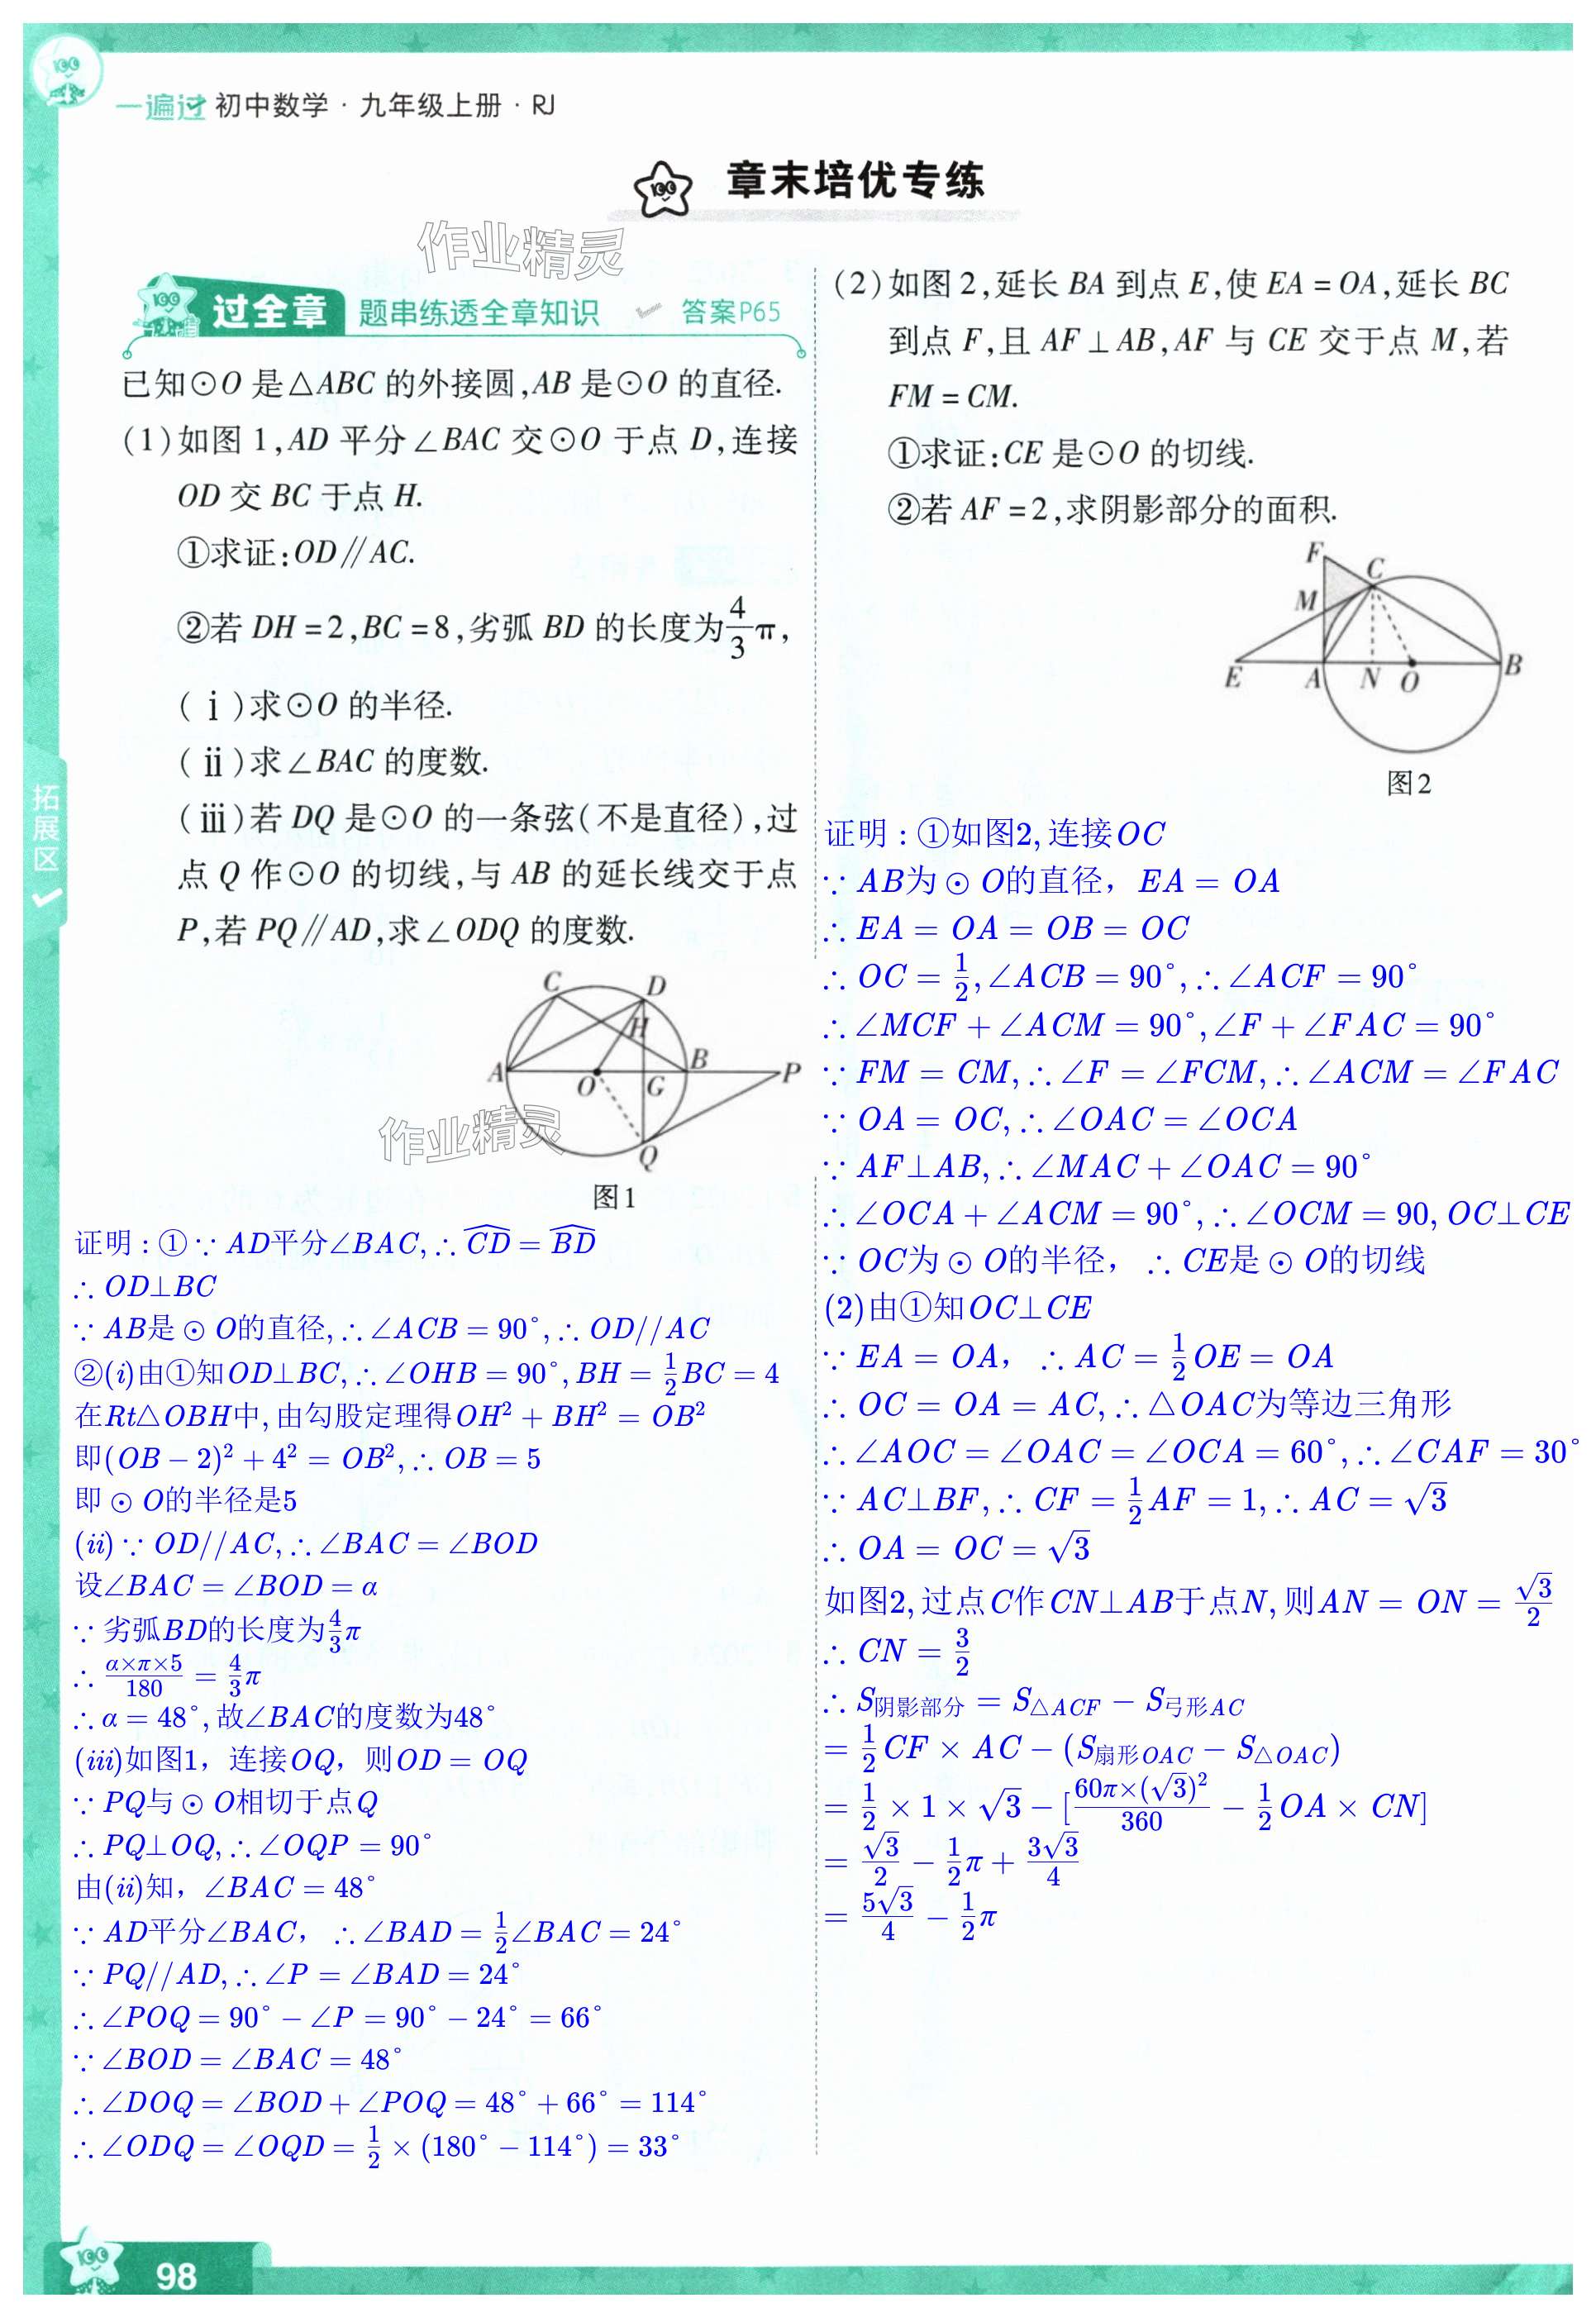 一遍过 初中数学·九年级上册·RJ
章末培优专练
作业精灵
过全章 题串练透全章知识 答案P65
已知⊙O 是△ABC 的外接圆,AB 是⊙O 的直径.
(1)如图 1,AD 平分∠BAC 交⊙O 于点 D,连接
OD 交 BC 于点 H.
①求证:OD∥AC.
②若 DH=2,BC=8,劣弧 BD 的长度为4/3π,
(ⅰ)求⊙O 的半径.
(ⅱ)求∠BAC 的度数.
(ⅲ)若 DQ 是⊙O 的一条弦(不是直径),过
点 Q 作⊙O 的切线,与 AB 的延长线交于点
P,若 PQ∥AD,求∠ODQ 的度数.
C D H A O G B P Q
作业精灵
图1
证明:①∵AD平分∠BAC,∴⌒CD=⌒BD
∴OD⊥BC
∵AB是⊙O的直径,∴∠ACB=90°,∴OD//AC
②(i)由①知OD⊥BC,∴∠OHB=90°,BH=1/2BC=4
在Rt△OBH中,由勾股定理得OH²+BH²=OB²
即(OB−2)²+4²=OB²,∴OB=5
即⊙O的半径是5
(ii)∵OD//AC,∴∠BAC=∠BOD
设∠BAC=∠BOD=α
∵劣弧BD的长度为4/3π
∴α×π×5/180=4/3π
∴α=48°,故∠BAC的度数为48°
(iii)如图1，连接OQ，则OD=OQ
∵PQ与⊙O相切于点Q
∴PQ⊥OQ,∴∠OQP=90°
由(ii)知，∠BAC=48°
∵AD平分∠BAC，∴∠BAD=1/2∠BAC=24°
∵PQ//AD,∴∠P=∠BAD=24°
∴∠POQ=90°−∠P=90°−24°=66°
∵∠BOD=∠BAC=48°
∴∠DOQ=∠BOD+∠POQ=48°+66°=114°
∴∠ODQ=∠OQD=1/2×(180°−114°)=33°
(2)如图 2,延长 BA 到点 E,使 EA=OA,延长 BC
到点 F,且 AF⊥AB,AF 与 CE 交于点 M,若
FM=CM.
①求证:CE 是⊙O 的切线.
②若 AF=2,求阴影部分的面积.
F C M E A N O B
图2
证明:①如图2,连接OC
∵AB为⊙O的直径，EA=OA
∴EA=OA=OB=OC
∴OC=1/2,∠ACB=90°,∴∠ACF=90°
∴∠MCF+∠ACM=90°,∠F+∠FAC=90°
∵FM=CM,∴∠F=∠FCM,∴∠ACM=∠FAC
∵OA=OC,∴∠OAC=∠OCA
∵AF⊥AB,∴∠MAC+∠OAC=90°
∴∠OCA+∠ACM=90°,∴∠OCM=90,OC⊥CE
∵OC为⊙O的半径，∴CE是⊙O的切线
(2)由①知OC⊥CE
∵EA=OA，∴AC=1/2OE=OA
∴OC=OA=AC,∴△OAC为等边三角形
∴∠AOC=∠OAC=∠OCA=60°,∴∠CAF=30°
∵AC⊥BF,∴CF=1/2AF=1,∴AC=√3
∴OA=OC=√3
如图2,过点C作CN⊥AB于点N,则AN=ON=√3/2
∴CN=3/2
∴S阴影部分=S△ACF−S弓形AC
=1/2CF×AC−(S扇形OAC−S△OAC)
=1/2×1×√3−[60π×(√3)²/360−1/2OA×CN]
=√3/2−1/2π+3√3/4
=5√3/4−1/2π
拓展区
98